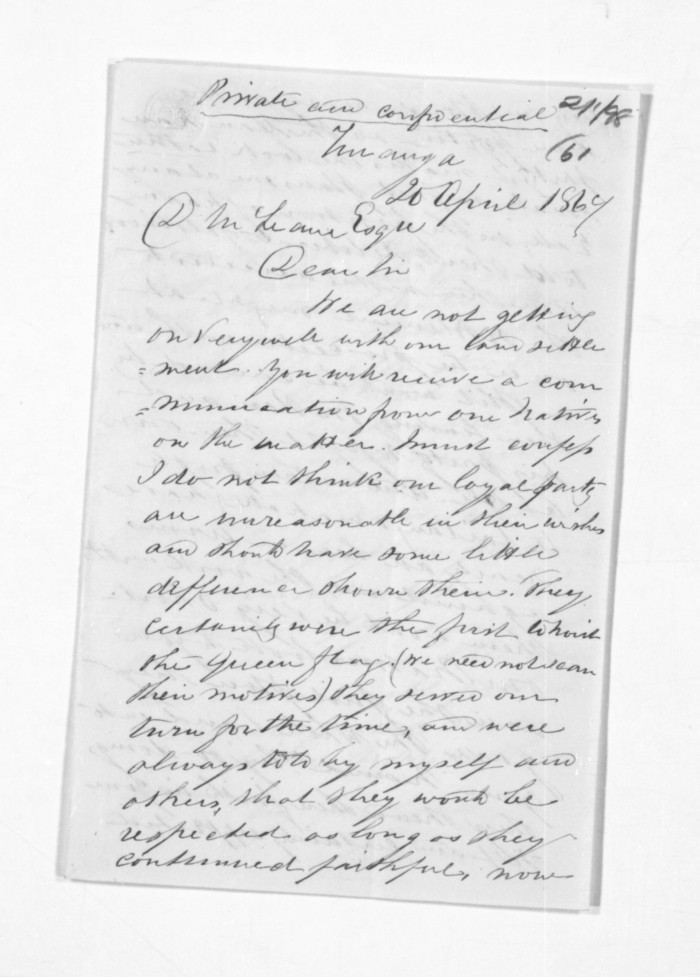 Private and confidential
Turanga
20 April 1867
D McLean Esqre
Dear Sir
We are not getting
on very well with our land settle
=ment. You will receive a com
=munication from our Natives
on the matter. I must confess
I do not think our loyal party
are unreasonable in their wishes
and should have some little
difference shown them. They
certainly were the first to hoist
the Queen flag, (We need not scan
their motives) they served our
turn for the time, and were
always told by myself and
others, that they would be
respected as long as they
continued faithful, now